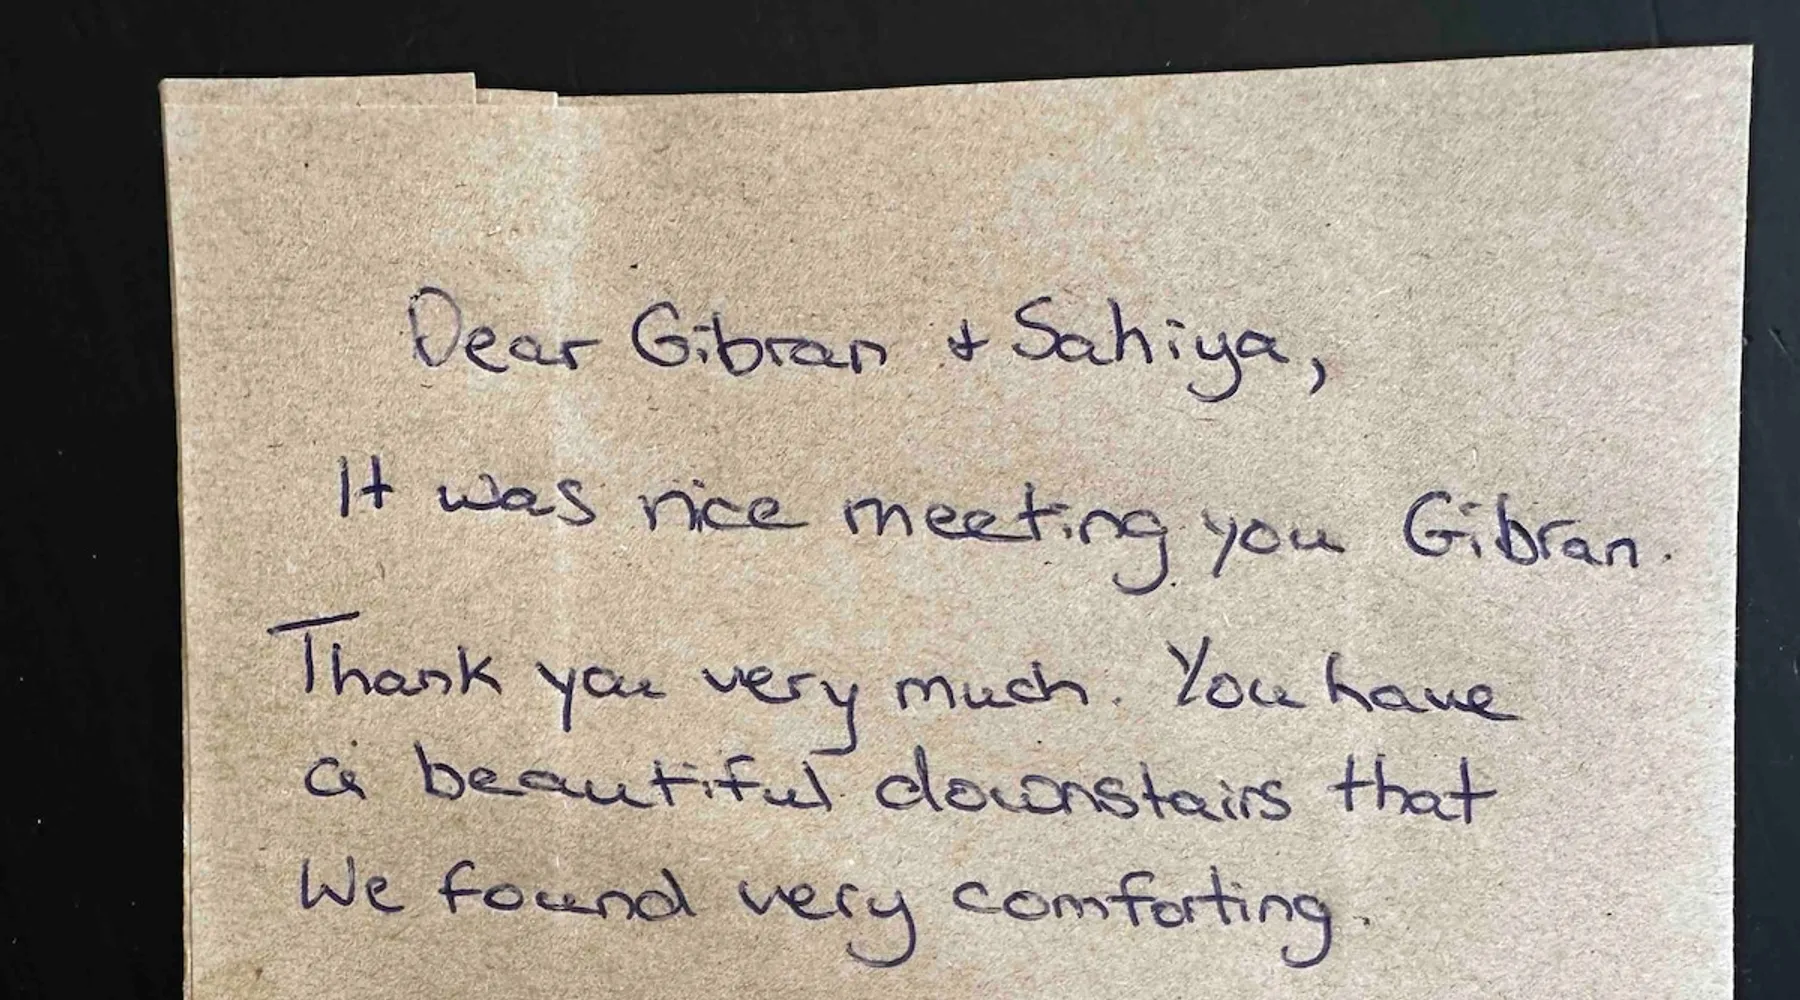 Dear Gibran & Sahiya,
It was nice meeting you Gibran.
Thank you very much. You have
a beautiful downstairs that
We found very comforting.